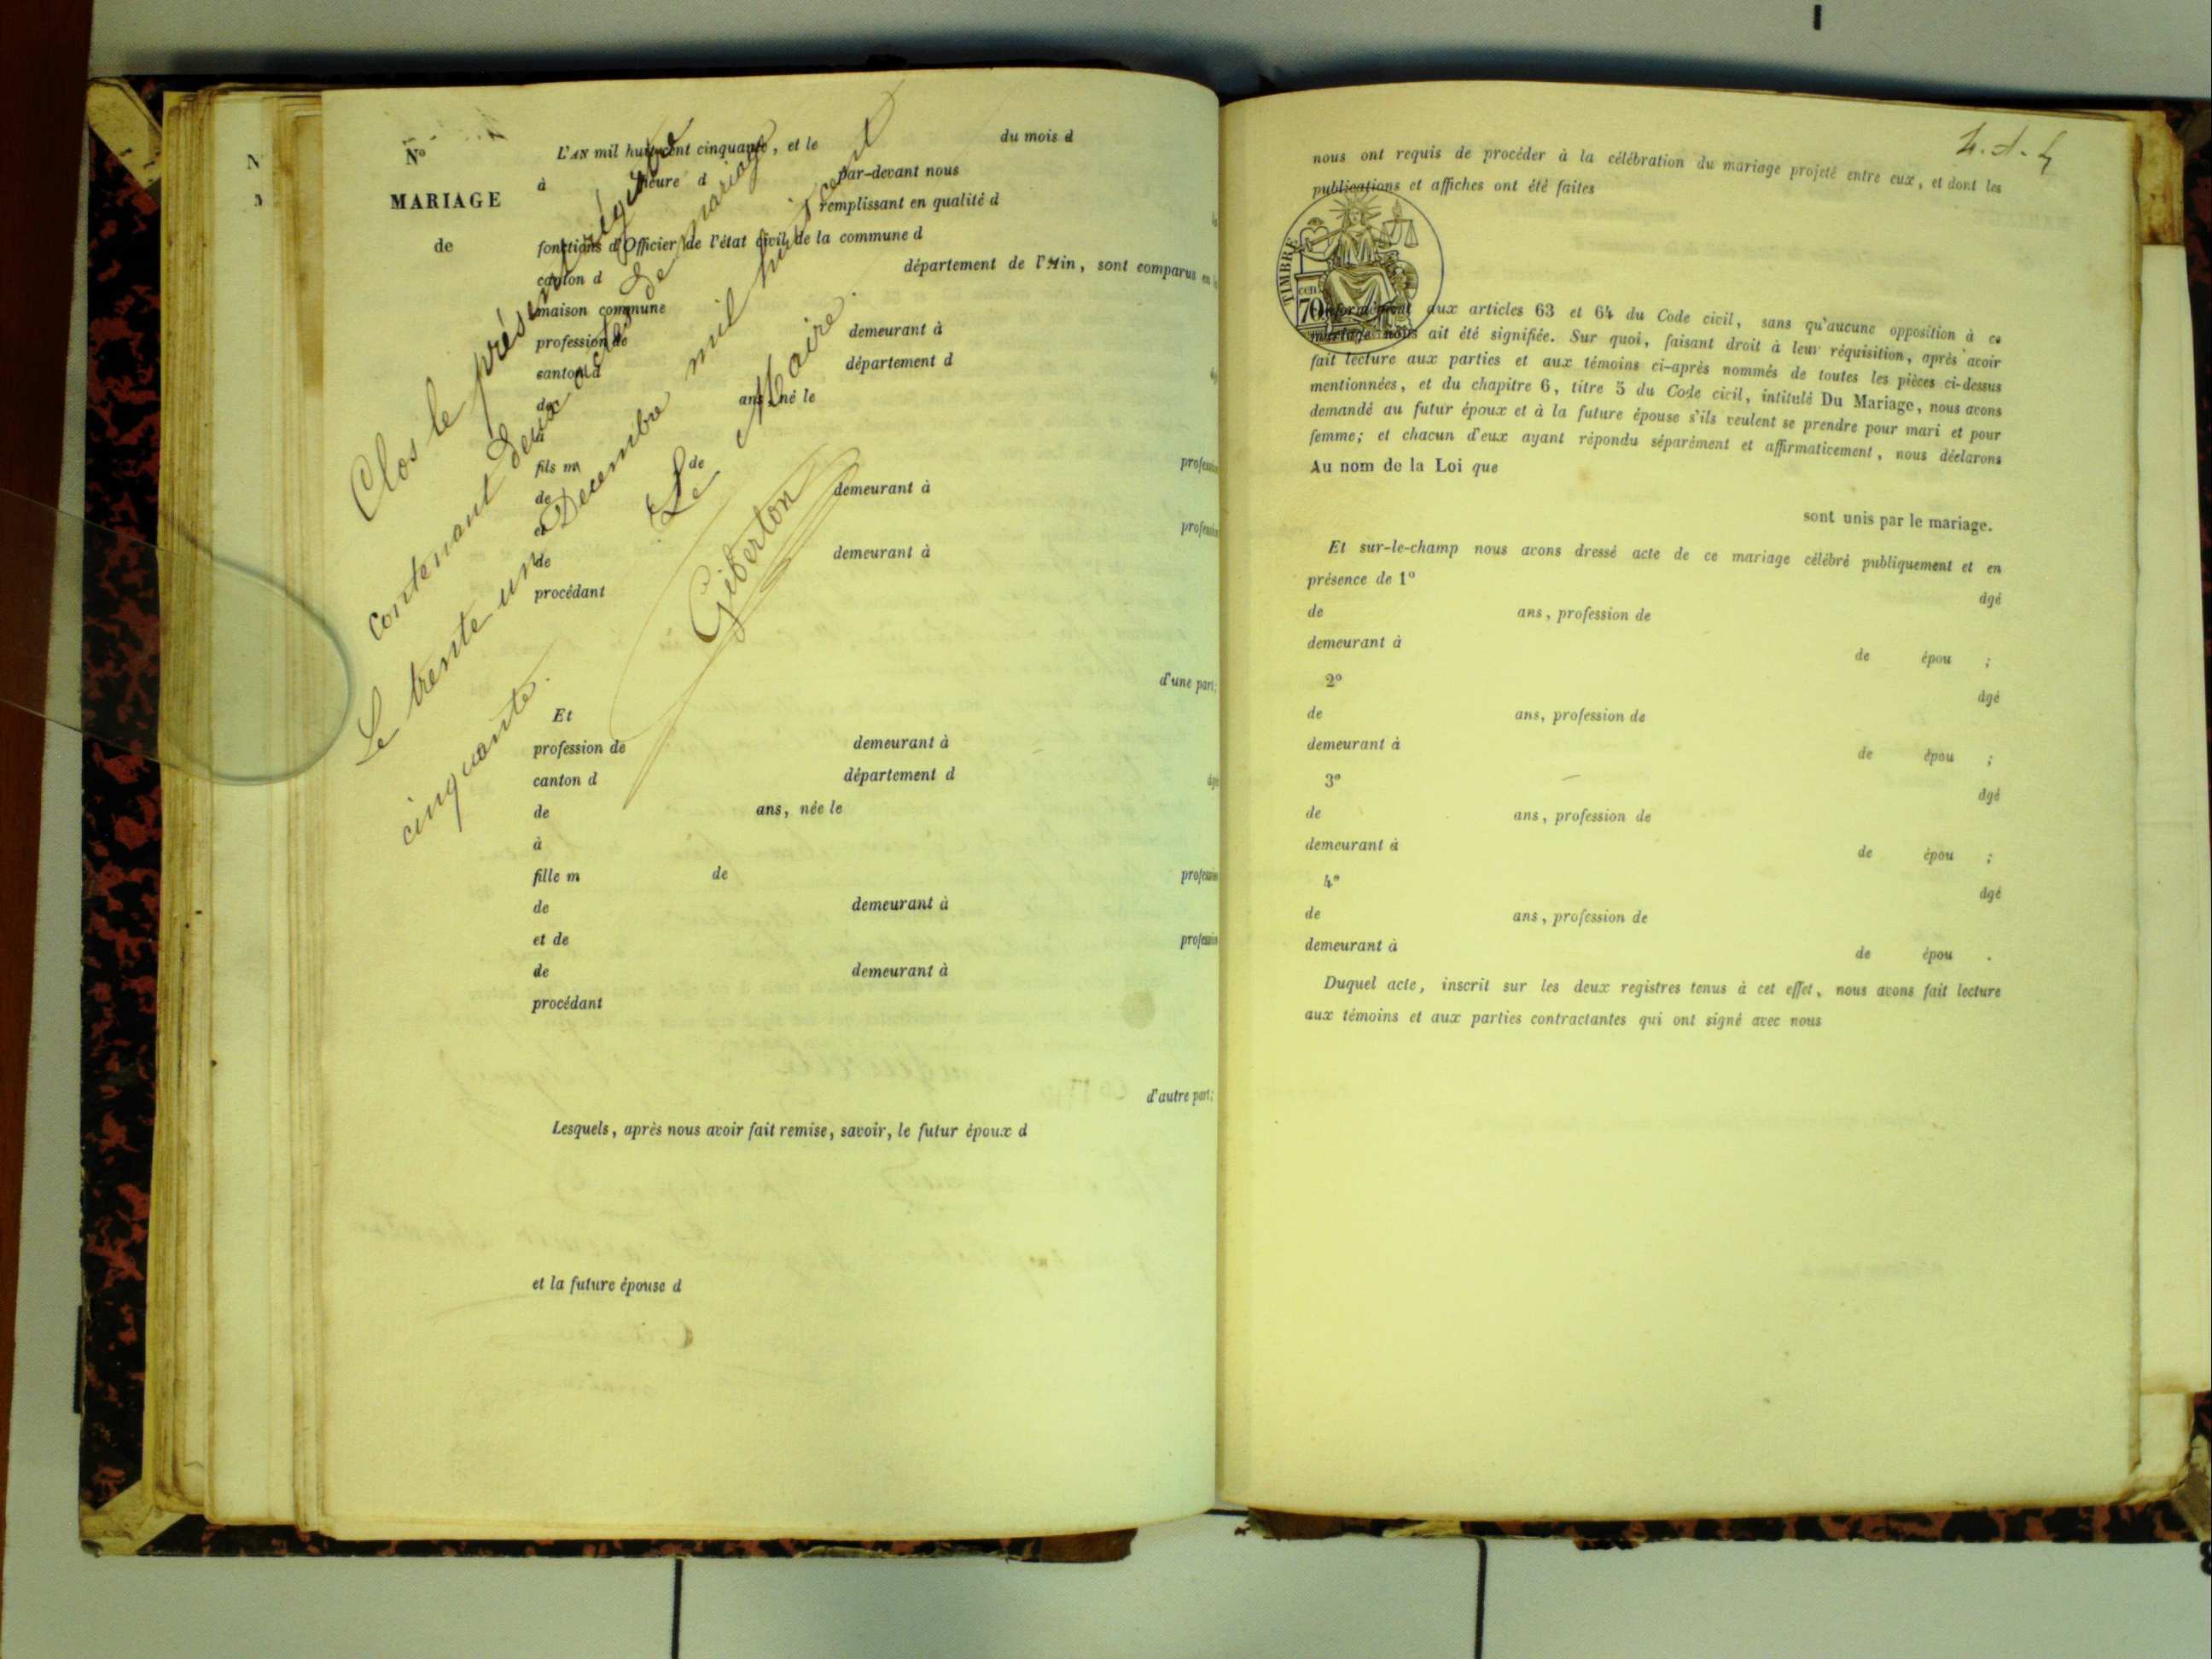 N
Nº
MARIAGE
de
L'AN mil huit cent cinquante, et le du mois d
à heure d par-devant nous
remplissant en qualité d
fonctions d'Officier de l'état civil de la commune d
canton d département de l'Ain, sont comparus en la
maison commune
profession de demeurant à
canton d département d
de ans, né le
à
fils m de profession
de demeurant à
et profession
de demeurant à
procédant
d'une part;
Et
profession de demeurant à
canton d département d âgée
de ans, née le
à
fille m de profession
de demeurant à
et de profession
de demeurant à
procédant
d'autre part;
Lesquels, après nous avoir fait remise, savoir, le futur époux d
et la future épouse d
Clos le présent régistre
contenant deux actes de mariage
Le trente un Decembre mil huit cent
cinquante.
Le Maire.
Giberton
nous ont requis de procéder à la célébration du mariage projeté entre eux, et dont les
publications et affiches ont été faites
TIMBRE
70 cen.
conformément aux articles 63 et 64 du Code civil, sans qu'aucune opposition à ce
mariage nous ait été signifiée. Sur quoi, faisant droit à leur réquisition, après avoir
fait lecture aux parties et aux témoins ci-après nommés de toutes les pièces ci-dessus
mentionnées, et du chapitre 6, titre 5 du Code civil, intitulé Du Mariage, nous avons
demandé au futur époux et à la future épouse s'ils veulent se prendre pour mari et pour
femme; et chacun d'eux ayant répondu séparément et affirmativement, nous déclarons
Au nom de la Loi que
sont unis par le mariage.
Et sur-le-champ nous avons dressé acte de ce mariage célébré publiquement et en
présence de 1º âgé
de ans, profession de
demeurant à de épou ;
2º âgé
de ans, profession de
demeurant à de épou ;
3º âgé
de ans, profession de
demeurant à de épou ;
4º âgé
de ans, profession de
demeurant à de épou .
Duquel acte, inscrit sur les deux registres tenus à cet effet, nous avons fait lecture
aux témoins et aux parties contractantes qui ont signé avec nous